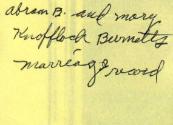 Abram B. and Mary
Knofflock Burnetts
marriage record